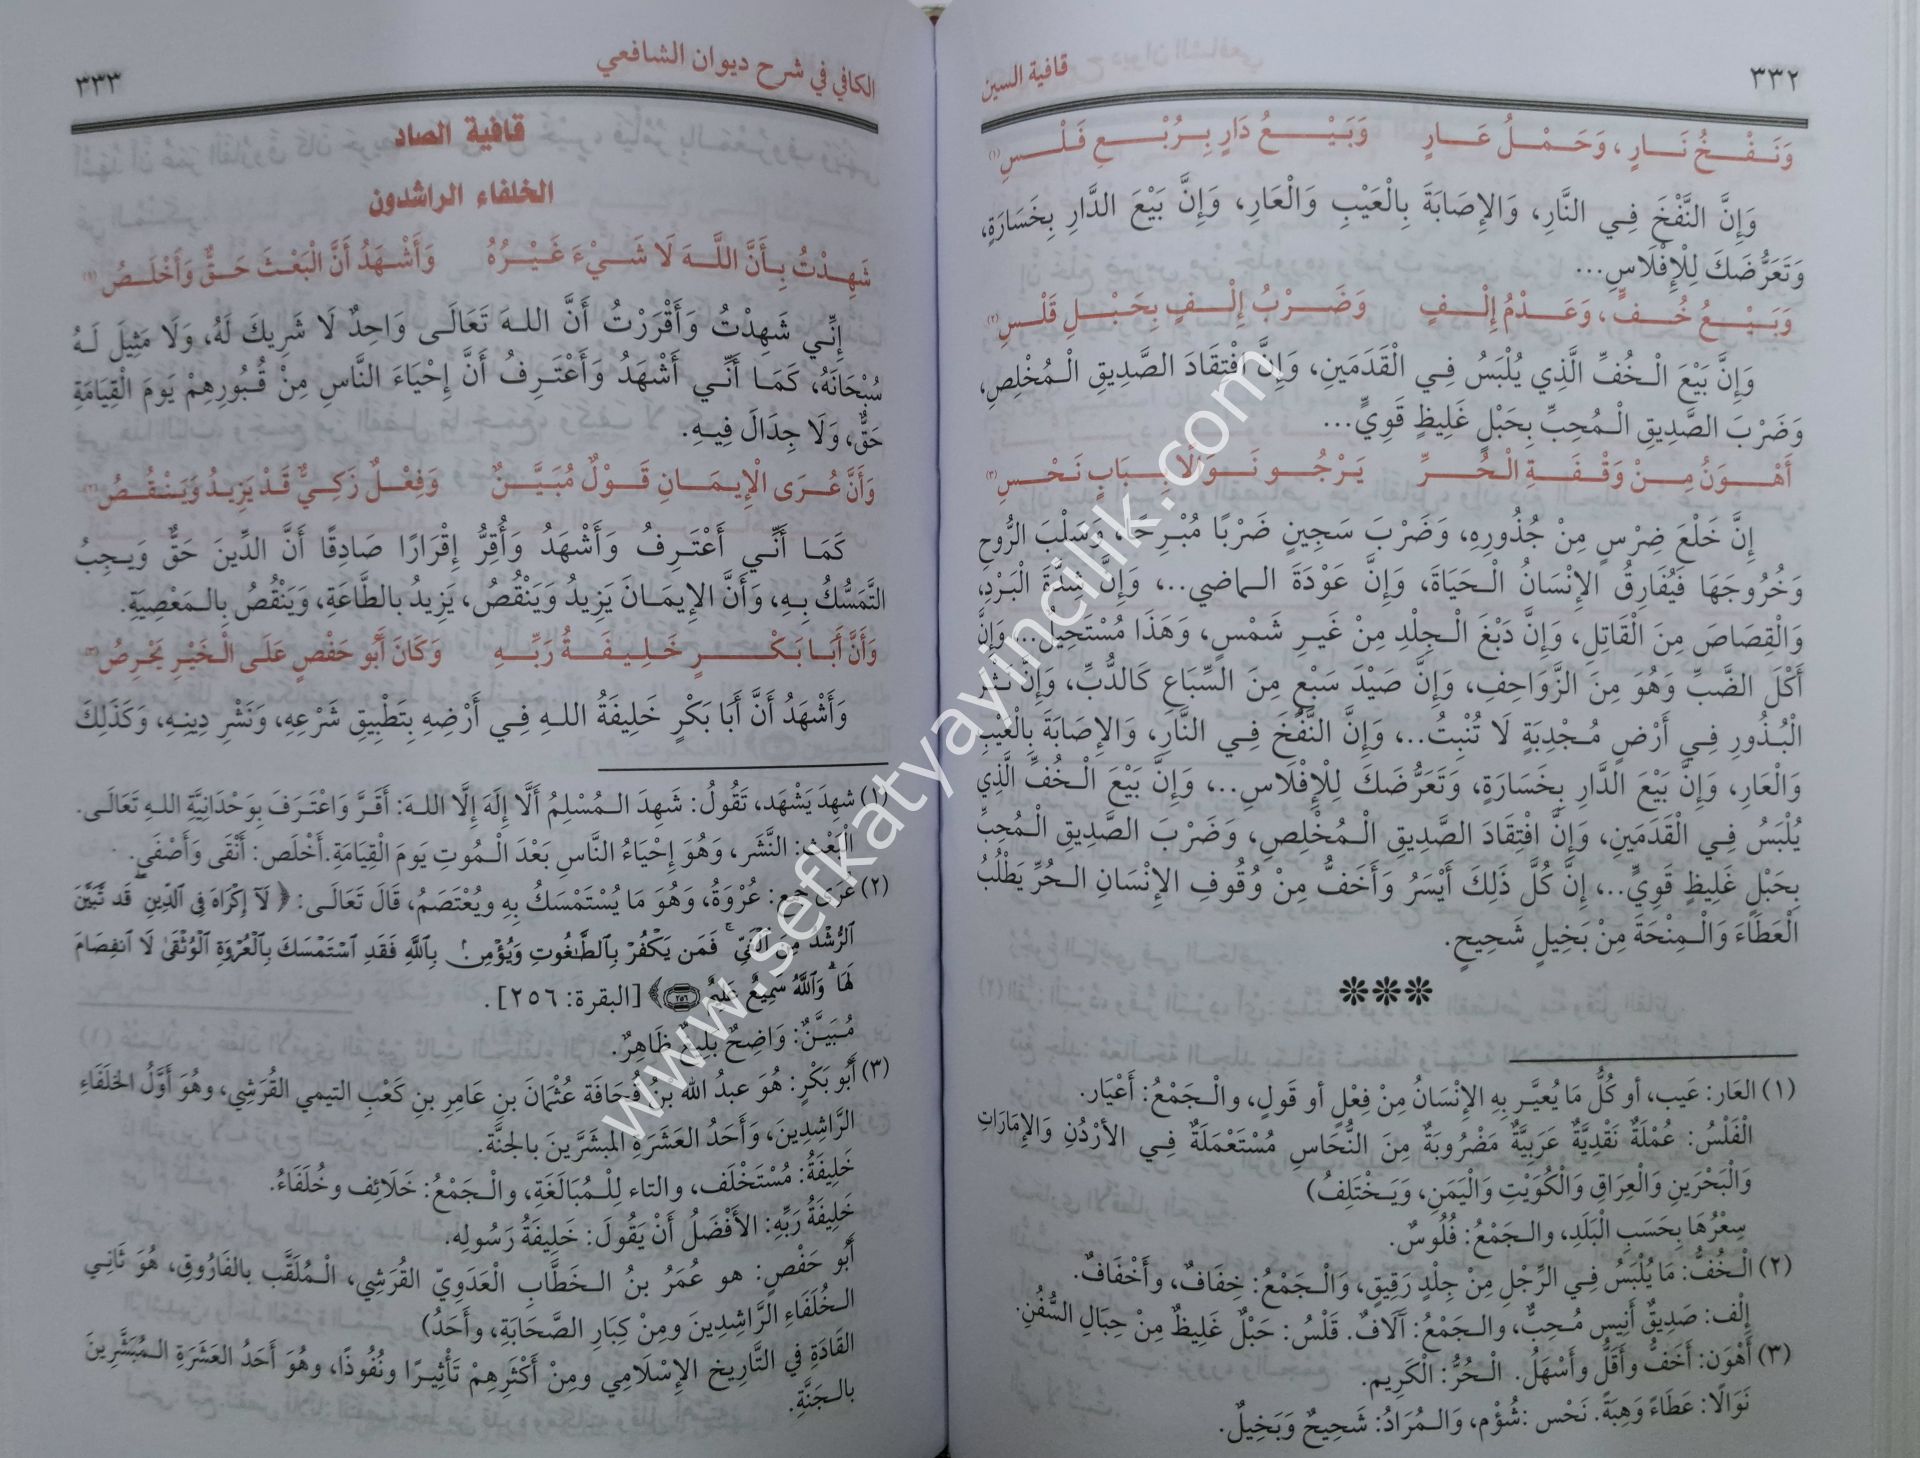 ٣٣٢ قافية السين
وَنَفْخُ نَارٍ، وَحَمْلُ عَارٍ وَبَيْعُ دَارٍ بِرُبْعِ فَلْسِ(١)
وَإِنَّ النَّفْخَ فِي النَّارِ، وَالإِصَابَةَ بِالْعَيْبِ وَالْعَارِ، وَإِنَّ بَيْعَ الدَّارِ بِخَسَارَةٍ،
وَتَعَرُّضَكَ لِلْإِفْلَاسِ...
وَبَيْعُ خُفٍّ، وَعَدْمُ إِلْفٍ وَضَرْبُ إِلْفٍ بِحَبْلِ قَلْسِ(٢)
وَإِنَّ بَيْعَ الْخُفِّ الَّذِي يُلْبَسُ فِي الْقَدَمَينِ، وَإِنَّ افْتِقَادَ الصَّدِيقِ الْمُخْلِصِ،
وَضَرْبَ الصَّدِيقِ الْمُحِبِّ بِحَبْلٍ غَلِيظٍ قَوِيٍّ...
أَهْوَنُ مِنْ وَقْفَةِ الْحُرِّ يَرْجُو نَوَالًا بِبَابِ نَحْسِ(٣)
إِنَّ خَلْعَ ضِرْسٍ مِنْ جُذُورِهِ، وَضَرْبَ سَجِينٍ ضَرْبًا مُبْرِحًا، وَسَلْبَ الرُّوحِ
وَخُرُوجَهَا فَيُفَارِقُ الإِنْسَانُ الْحَيَاةَ، وَإِنَّ عَوْدَةَ الْماضي..، وَإِنَّ شِدَّةَ الْبَرْدِ،
وَالْقِصَاصَ مِنَ الْقَاتِلِ، وَإِنَّ دَبْغَ الْجِلْدِ مِنْ غَيرِ شَمْسٍ، وَهَذَا مُسْتَحِيلٌ.. وَإِنَّ
أَكْلَ الضَّبِّ وَهُوَ مِنَ الزَّوَاحِفِ، وَإِنَّ صَيْدَ سَبْعٍ مِنَ السِّبَاعِ كَالدُّبِّ، وَإِنَّ نَثْرَ
الْبُذُورِ فِي أَرْضٍ مُجْدِبَةٍ لَا تُنْبِتُ..، وَإِنَّ النَّفْخَ فِي النَّارِ، وَالإِصَابَةَ بِالْعَيْبِ
وَالْعَارِ، وَإِنَّ بَيْعَ الدَّارِ بِخَسَارَةٍ، وَتَعَرُّضَكَ لِلْإِفْلَاسِ..، وَإِنَّ بَيْعَ الْخُفِّ الَّذِي
يُلْبَسُ فِي الْقَدَمَينِ، وَإِنَّ افْتِقَادَ الصَّدِيقِ الْمُخْلِصِ، وَضَرْبَ الصَّدِيقِ الْمُحِبِّ
بِحَبْلٍ غَلِيظٍ قَوِيٍّ..، إِنَّ كُلَّ ذَلِكَ أَيْسَرُ وَأَخَفُّ مِنْ وُقُوفِ الإِنْسَانِ الْحُرِّ يَطْلُبُ
الْعَطَاءَ وَالْمِنْحَةَ مِنْ بَخِيلٍ شَحِيحٍ.
***
(١) العَار: عَيب، أو كُلُّ مَا يُعيَّر بِهِ الإِنْسَانُ مِنْ فِعْلٍ أو قَولٍ، والْجَمْعُ: أَعْيَار.
الْفَلْسُ: عُمْلَةٌ نَقْدِيَّةٌ عَرَبِيَّةٌ مَضْرُوبَةٌ مِنَ النُّحَاسِ مُسْتَعْمَلَةٌ فِي الأَرْدُنِ وَالإِمَارَاتِ
وَالْبَحْرَينِ وَالْعِرَاقِ وَالْكُوَيْتِ وَالْيَمَنِ، وَيَخْتَلِفُ)
سِعْرُهَا بِحَسَبِ الْبَلَدِ، والْجَمْعُ: فُلُوسٌ.
(٢) الْخُفُّ: مَا يُلْبَسُ فِي الرِّجْلِ مِنْ جِلْدٍ رَقِيقٍ، وَالْجَمْعُ: خِفَافٌ، وأَخْفَافٌ.
إِلْف: صَدِيقٌ أَنِيس مُحِبٌّ، والْجَمْعُ: آلَافٌ. قَلْسُ: حَبْلٌ غَلِيظٌ مِنْ حِبَالِ السُّفُنِ.
(٣) أَهْوَن: أَخَفُّ وأَقَلُّ وأَسْهَلُ. الْحُرُّ: الْكَرِيم.
نَوَالًا: عَطَاءً وَهِبَةً. نَحْس: شُؤْم، وَالْمُرَادُ: شَحِيحٌ وَبَخِيلٌ.
الكافي في شرح ديوان الشافعي ٣٣٣
قافية الصاد
الخلفاء الراشدون
شَهِدْتُ بِأَنَّ اللَّهَ لَا شَيْءَ غَيْرُهُ وَأَشْهَدُ أَنَّ الْبَعْثَ حَقٌّ وَأَخْلَصُ(١)
إِنِّي شَهِدْتُ وَأَقْرَرْتُ أَنَّ اللهَ تَعَالَى وَاحِدٌ لَا شَرِيكَ لَهُ، وَلَا مَثِيلَ لَهُ
سُبْحَانَهُ، كَمَا أَنِّي أَشْهَدُ وَأَعْتَرِفُ أَنَّ إِحْيَاءَ النَّاسِ مِنْ قُبُورِهِمْ يَومَ الْقِيَامَةِ
حَقٌّ، وَلَا جِدَالَ فِيهِ.
وَأَنَّ عُرَى الْإِيمَانِ قَوْلٌ مُبَيَّنٌ وَفِعْلٌ زَكِيٌّ قَدْ يَزِيدُ وَيَنْقُصُ(٢)
كَمَا أَنِّي أَعْتَرِفُ وَأَشْهَدُ وَأُقِرُّ إِقْرَارًا صَادِقًا أَنَّ الدِّينَ حَقٌّ وَيجِبُ
التَّمَسُّكُ بِهِ، وَأَنَّ الإِيمَانَ يَزِيدُ وَيَنْقُصُ، يَزِيدُ بالطَّاعَةِ، وَيَنْقُصُ بِالْمَعْصِيَةِ.
وَأَنَّ أَبَا بَكْرٍ خَلِيفَةُ رَبِّهِ وَكَانَ أَبُو حَفْصٍ عَلَى الْخَيْرِ يَحْرِصُ(٣)
وَأَشْهَدُ أَنَّ أَبَا بَكْرٍ خَلِيفَةُ اللهِ فِي أَرْضِهِ بِتَطْبِيقِ شَرْعِهِ، وَنَشْرِ دِينِهِ، وَكَذَلِكَ
(١) شَهِدَ يَشْهَد، تَقُولُ: شَهِدَ الْمُسْلِمُ أَلَّا إِلَهَ إِلَّا اللهَ: أَقَرَّ وَاعْتَرَفَ بِوَحْدَانِيَّةِ اللهِ تَعَالَى.
الْبَعْث: النَّشَر، وَهُوَ إِحْيَاءُ النَّاسِ بَعْدَ الْموتِ يَومَ القِيَامَةِ. أخْلَص: أَنْقَى وَأَصْفَى.
(٢) عُرَى جمع: عُرْوَةُ، وَهُوَ مَا يُسْتَمْسَكُ بِهِ ويُعْتَصَمُ، قَالَ تَعَالَى: ﴿لَآ إِكْرَاهَ فِي ٱلدِّينِۖ قَد تَّبَيَّنَ
ٱلرُّشْدُ مِنَ ٱلْغَيِّۚ فَمَن يَكْفُرْ بِٱلطَّٰغُوتِ وَيُؤْمِنۢ بِٱللَّهِ فَقَدِ ٱسْتَمْسَكَ بِٱلْعُرْوَةِ ٱلْوُثْقَىٰ لَا ٱنفِصَامَ
لَهَاۗ وَٱللَّهُ سَمِيعٌ عَلِيمٌ ٢٥٦﴾ [البقرة: ٢٥٦].
مُبَيَّنٌ: وَاضِحٌ بَلِيغٌ ظَاهِرٌ.
(٣) أَبُو بَكْرٍ: هُوَ عبدُ الله بنُ قُحَافَة عُثْمَانَ بنِ عَامِرِ بنِ كَعْبِ التيمي القُرَشِي، وهُوَ أَوَّلُ الخلَفَاءِ
الرَّاشِدِينَ، وَأَحَدُ العَشَرَةِ المبشَرَّينَ بالجنَّة.
خَلِيفَةُ: مُسْتَخْلَف، والتاء لِلْمُبَالَغَةِ، والْجَمْعُ: خَلَائِف وخُلَفَاءُ.
خَلِيفَةُ رَبِّهِ: الأَفْضَلُ أَنْ يَقُولَ: خَلِيفَةُ رَسُولِه.
أَبُو حَفْصٍ: هو عُمَرُ بنُ الْخَطَّابِ الْعَدَوِيّ القُرَشِي، الْمُلَقَّب بالفَارُوقِ، هُوَ ثَانِي
الْخُلَفَاءِ الرَّاشِدِينَ ومِنْ كِبَارِ الصَّحَابَةِ، وأحَدُ)
القَادَةِ في التَّارِيخِ الإِسْلَامِي ومِنْ أَكْثَرِهِمْ تَأْثِيرًا ونُفُوذًا، وهُوَ أَحَدُ العَشَرَةِ الْمُبَشَّرِينَ
بالْجَنَّةِ.
www.sefkatyayincilik.com